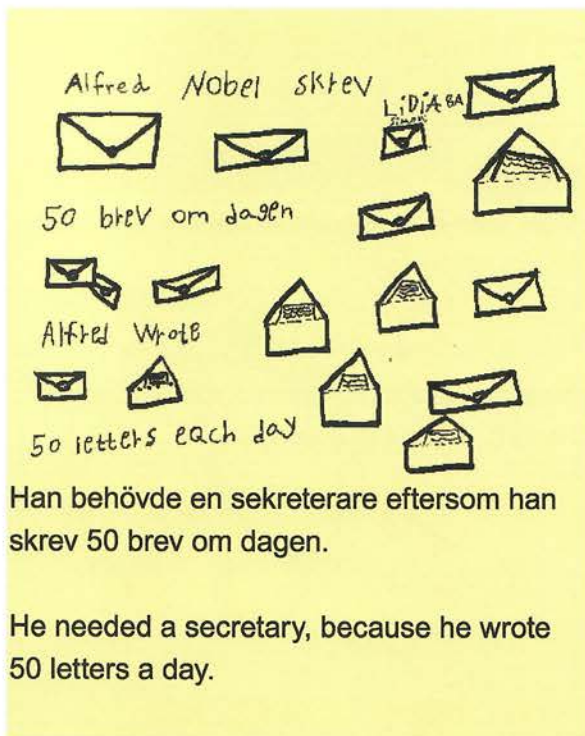 Alfred Nobel skrev
LiDiA BA
Simon
50 brev om dagen
Alfred Wrote
50 letters each day
Han behövde en sekreterare eftersom han
skrev 50 brev om dagen.
He needed a secretary, because he wrote
50 letters a day.